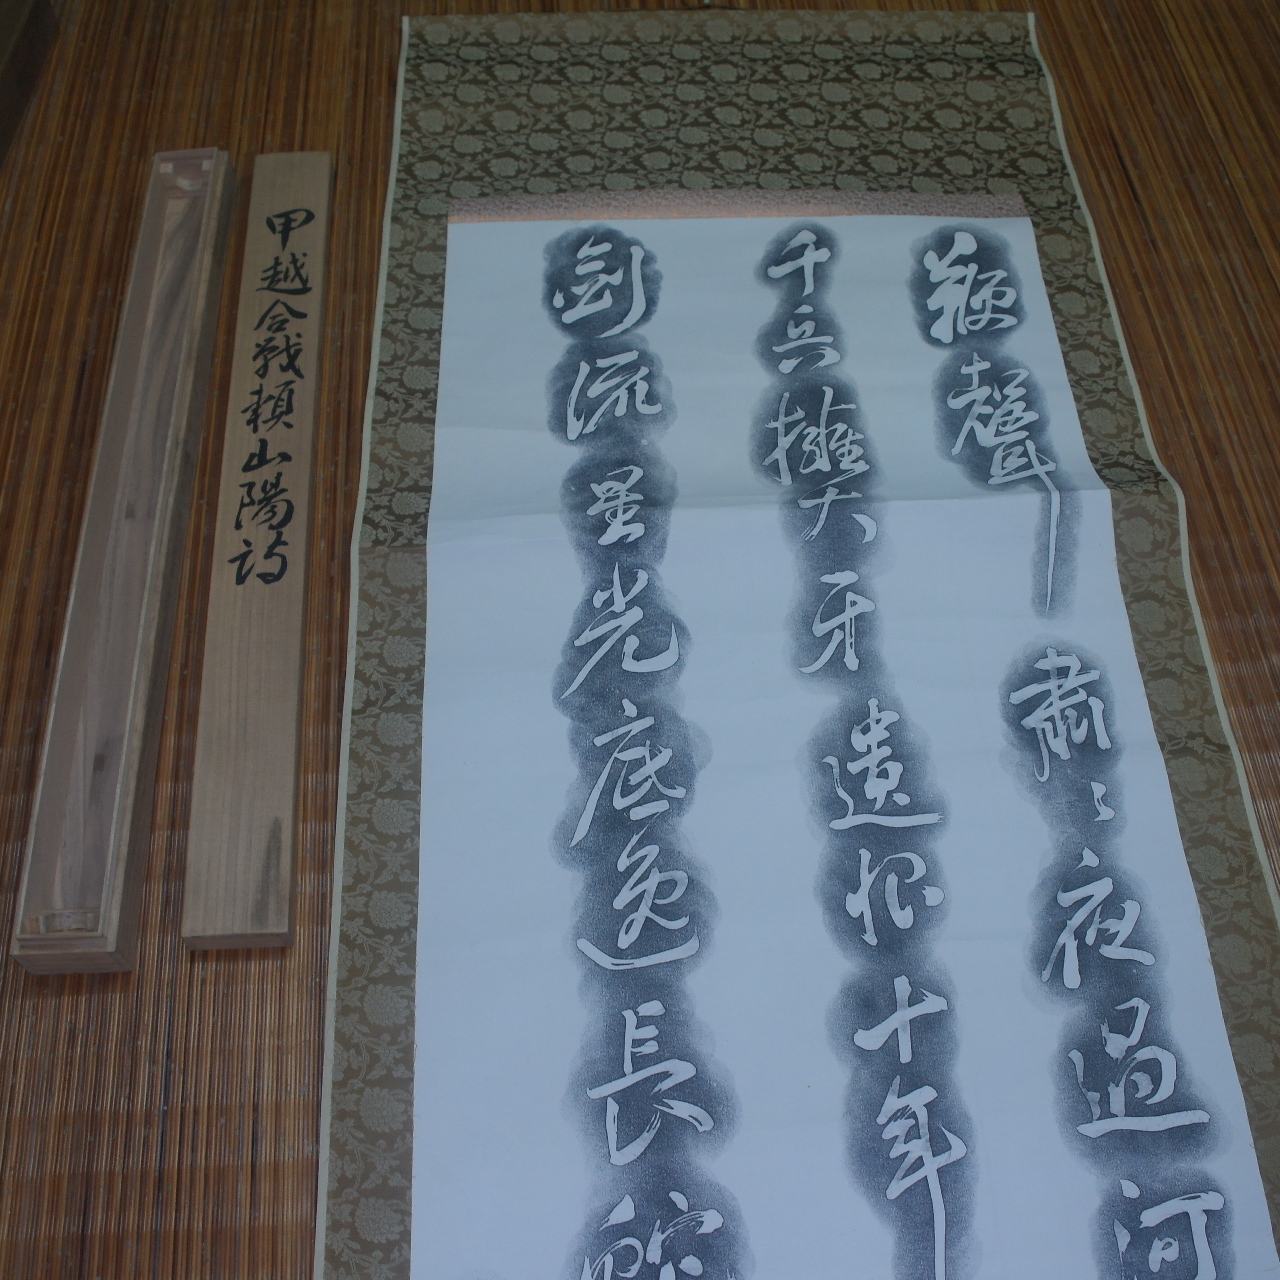 鞭聲肅〻夜過河
千兵擁大牙遺恨十年
劍流星光底逸長蛇
甲越合戦頼山陽詩